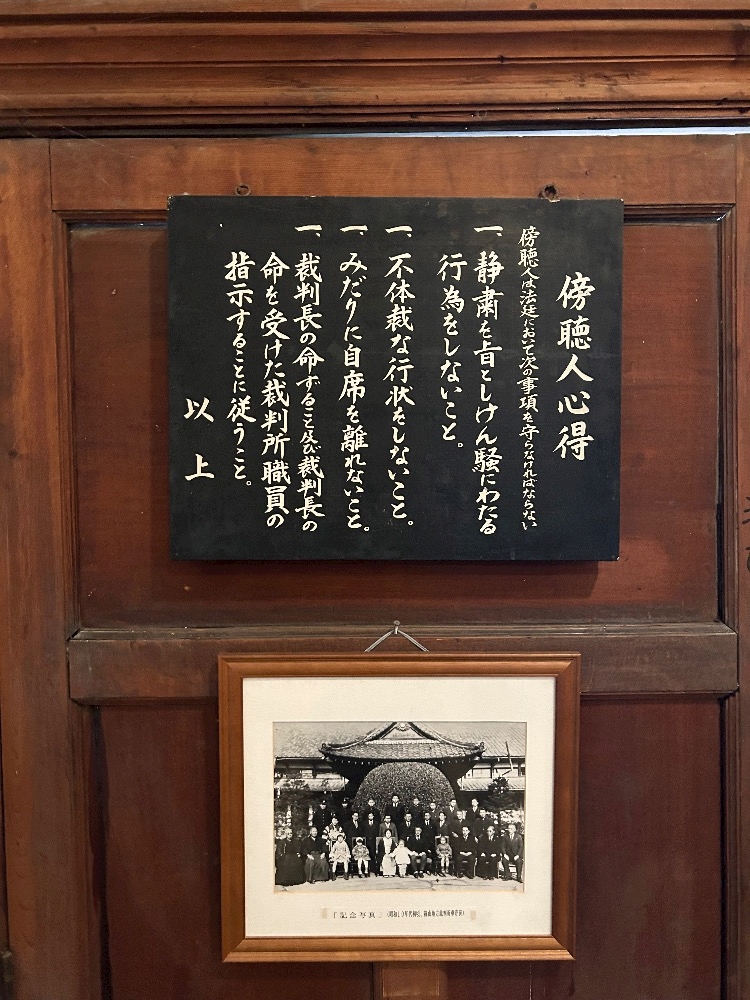 傍聴人心得
傍聴人は法廷において次の事項を守らなければならない
一、静粛を旨としけん騒にわたる
行為をしないこと。
一、不体裁な行状をしないこと。
一、みだりに自席を離れないこと。
一、裁判長の命ずること及び裁判長の
命を受けた裁判所職員の
指示することに従うこと。
以上
「記念写真」